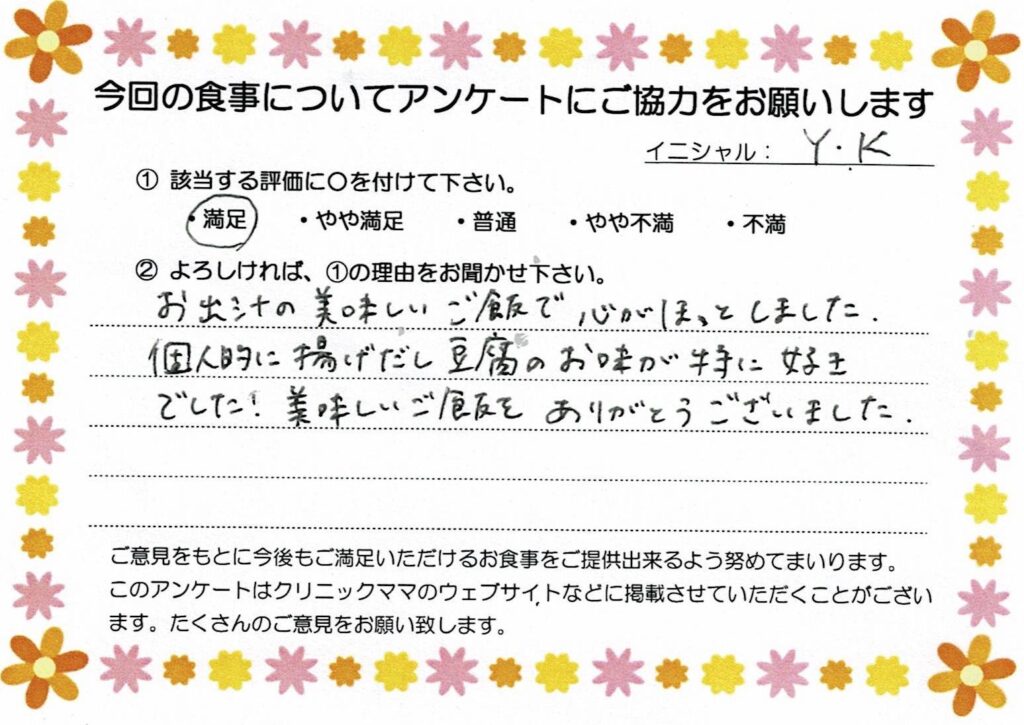 今回の食事についてアンケートにご協力をお願いします
イニシャル： Y.K
① 該当する評価に○を付けて下さい。
・満足 ・やや満足 ・普通 ・やや不満 ・不満
② よろしければ、①の理由をお聞かせ下さい。
お出汁の美味しいご飯で心がほっとしました.
個人的に揚げだし豆腐のお味が特に好き
でした! 美味しいご飯を ありがとうございました.
ご意見をもとに今後もご満足いただけるお食事をご提供出来るよう努めてまいります。
このアンケートはクリニックママのウェブサイトなどに掲載させていただくことがござい
ます。たくさんのご意見をお願い致します。